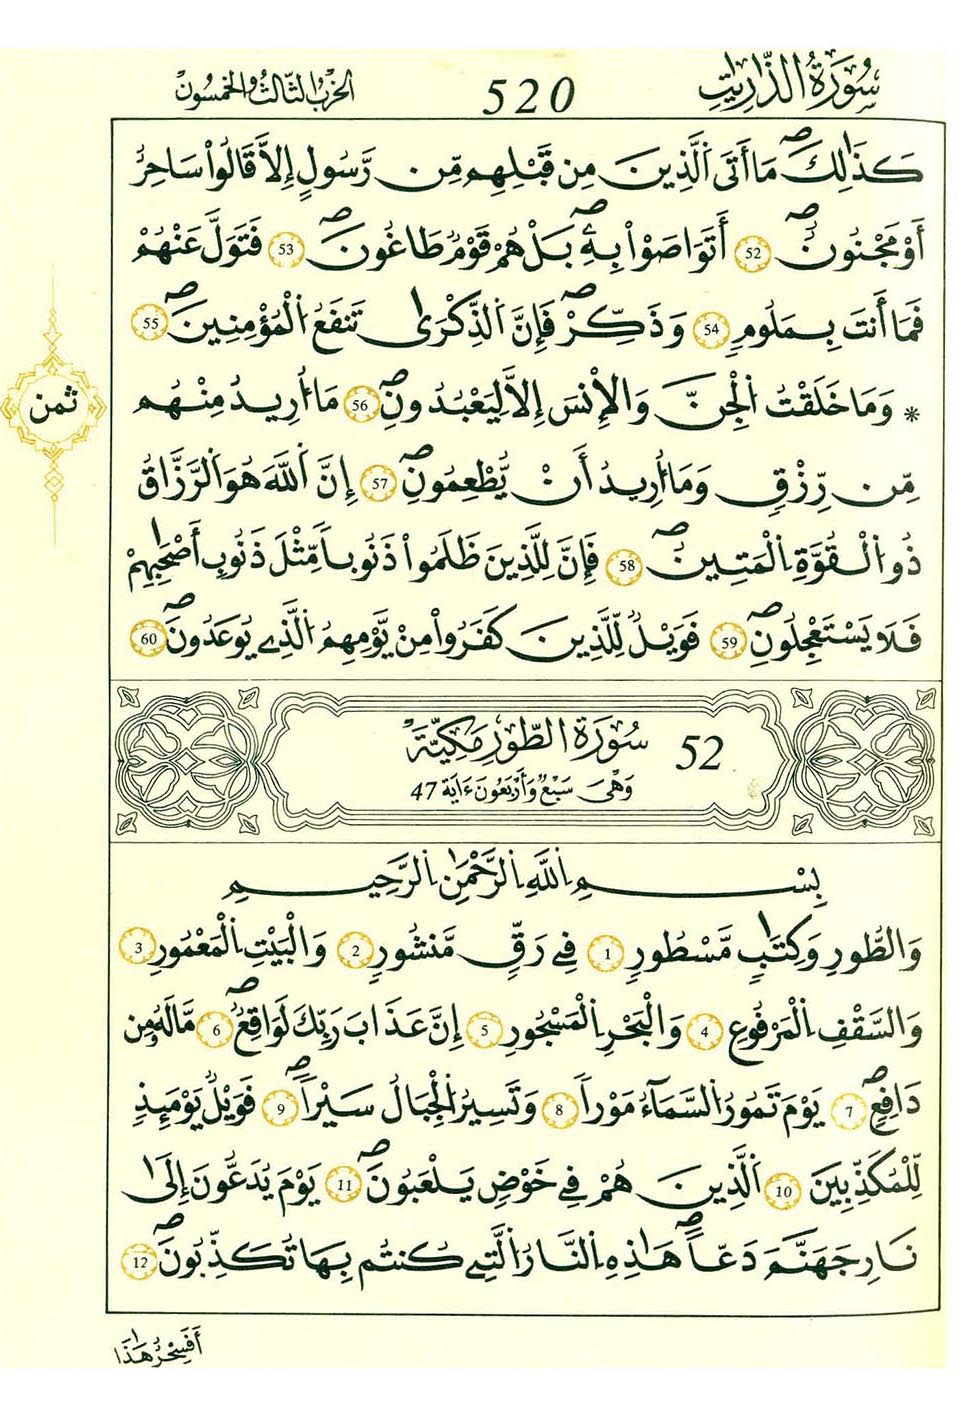 سُورَةُ الذَّارِيَٰتِ 520 الحزب الثالث والخمسون
كَذَٰلِكَۖ مَا أَتَى اَ۬لذِينَ مِن قَبْلِهِم مِّن رَّسُولٍ إِلَّا قَالُواْ سَاحِرٌ
أَوْ مَجْنُونٌۖ 52 أَتَوَاصَوْاْ بِهِۦۖ بَلْ هُمْ قَوْمٌ طَاغُونَۖ 53 فَتَوَلَّ عَنْهُمْ
فَمَا أَنتَ بِمَلُومٍ 54 وَذَكِّرْۖ فَإِنَّ اَ۬لذِّكْرَىٰ تَنفَعُ اُ۬لْمُؤْمِنِينَۖ 55
ثمن
* وَمَا خَلَقْتُ اُ۬لْجِنَّ وَالْإِنسَ إِلَّا لِيَعْبُدُونِۖ 56 مَا أُرِيدُ مِنْهُم
مِّن رِّزْقٍ وَمَا أُرِيدُ أَنْ يُّطْعِمُونِۖ 57 إِنَّ اَ۬للَّهَ هُوَ اَ۬لرَّزَّاقُ
ذُو اُ۬لْقُوَّةِ اِ۬لْمَتِينُۖ 58 فَإِنَّ لِلَّذِينَ ظَلَمُواْ ذَنُوباً مِّثْلَ ذَنُوبِ أَصْحَٰبِهِمْ
فَلَا يَسْتَعْجِلُونِۖ 59 فَوَيْلٌ لِّلَّذِينَ كَفَرُواْ مِنْ يَّوْمِهِمُ اُ۬لذِے يُوعَدُونَۖ 60
52 سُورَةُ الطُّورِ مَكِّيَّةٌ
وَهْيَ سَبْعٌ وَأَرْبَعُونَ ءَايَة 47
بِسْمِ اِ۬للَّهِ اِ۬لرَّحْمَٰنِ اِ۬لرَّحِيمِ
وَالطُّورِ وَكِتَٰبٍ مَّسْطُورٍ 1 فِے رَقٍّ مَّنشُورٍ 2 وَالْبَيْتِ اِ۬لْمَعْمُورِ 3
وَالسَّقْفِ اِ۬لْمَرْفُوعِ 4 وَالْبَحْرِ اِ۬لْمَسْجُورِ 5 إِنَّ عَذَابَ رَبِّكَ لَوَاقِعٌۖ 6 مَّا لَهُۥ مِن
دَافِعٍۖ 7 يَوْمَ تَمُورُ اُ۬لسَّمَآءُ مَوْراً 8 وَتَسِيرُ اُ۬لْجِبَالُ سَيْراًۖ 9 فَوَيْلٌ يَوْمَئِذٍ
لِّلْمُكَذِّبِينَ 10 اَ۬لذِينَ هُمْ فِے خَوْضٍ يَلْعَبُونَۖ 11 يَوْمَ يُدَعُّونَ إِلَىٰ
نَارِ جَهَنَّمَ دَعّاًۖ هَٰذِهِ اِ۬لنَّارُ اُ۬لتِے كُنتُم بِهَا تُكَذِّبُونَۖ 12
أَفَسِحْرٌ هَٰذَا